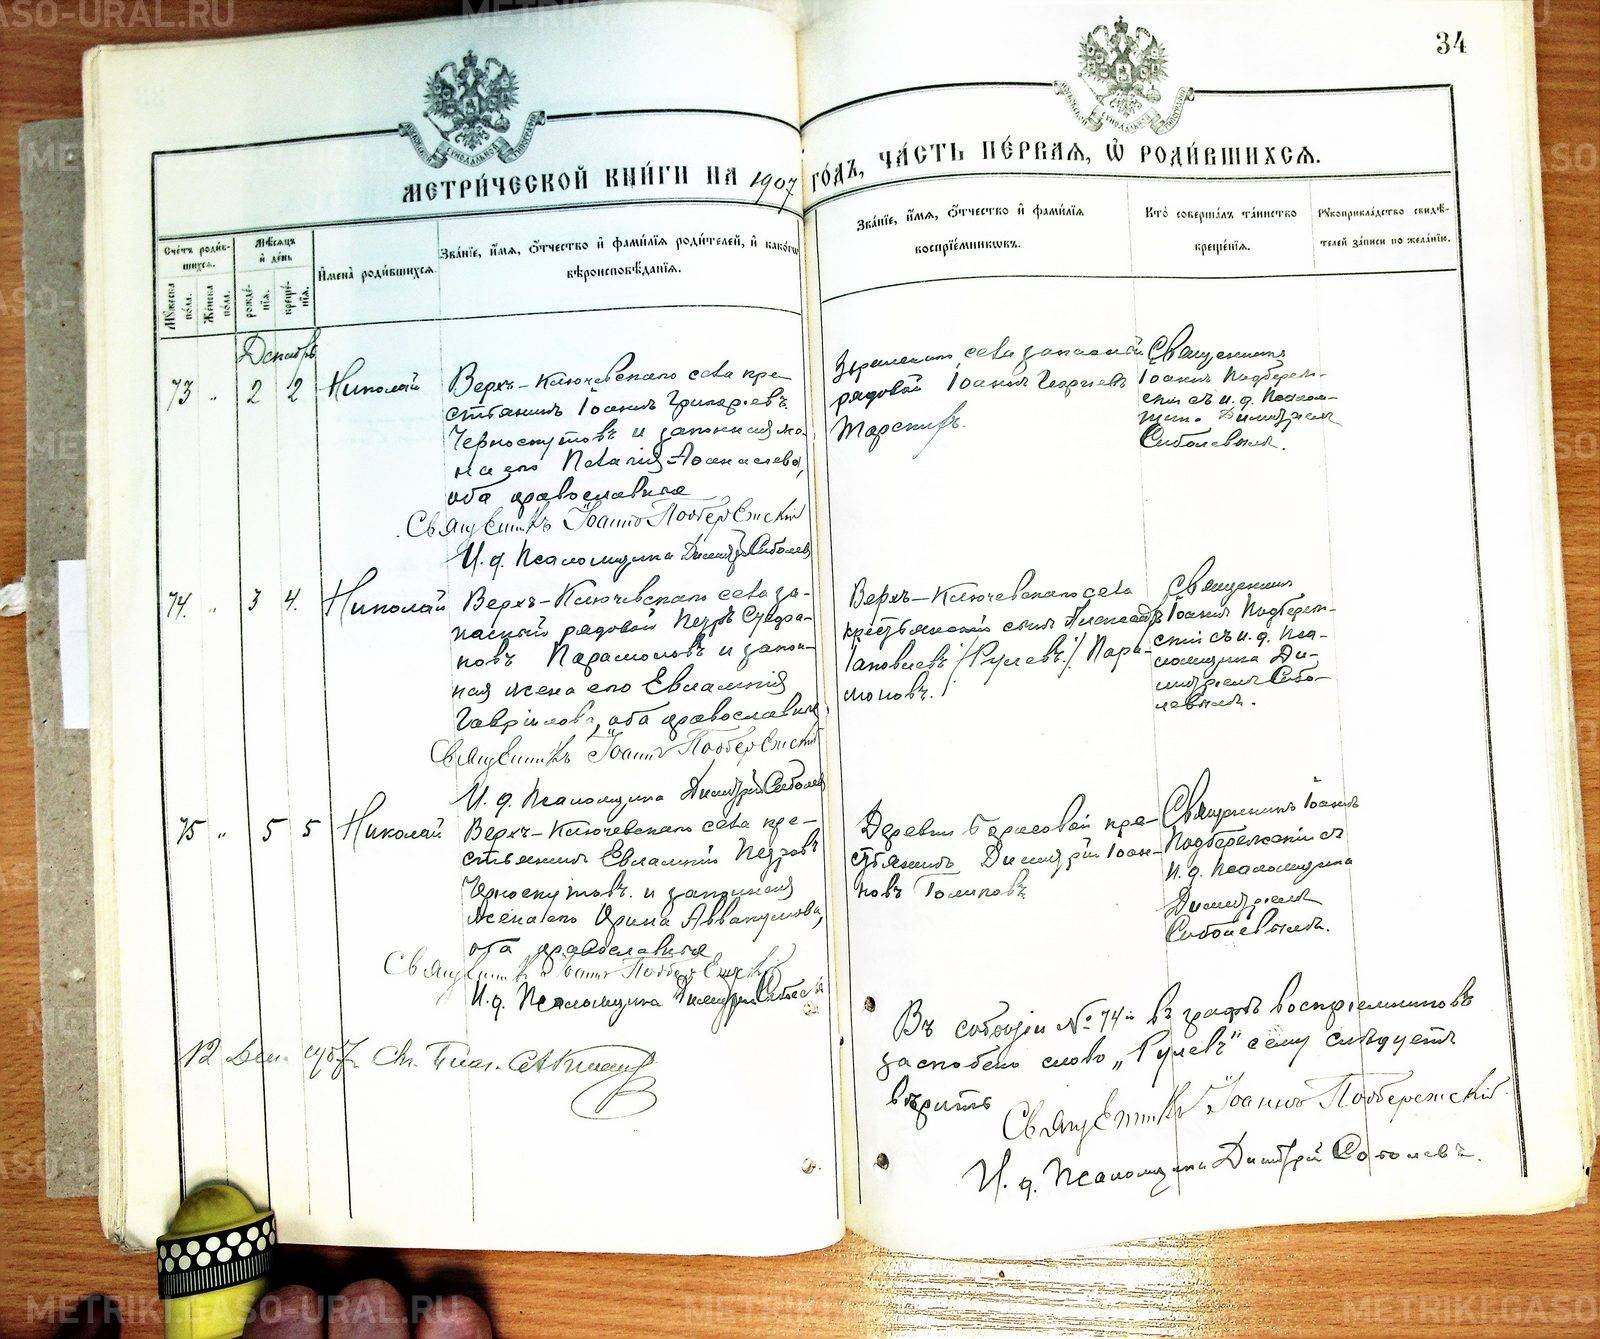 METRIKI.GASO-URAL.RU
34
МЕТРИ́ЧЕСКОЙ КНИ́ГИ НА 1907 ГО́ДЪ, ЧА́СТЬ ПЕ́РВАЯ, Ѡ РОДИ́ВШИХСЯ.
Сче́тъ роди́в-
шихся.
Му́жеска по́ла.
Же́нска по́ла.
Мѣ́сяцъ и де́нь
рожде́-
нія.
креще́-
нія.
Имена̀ роди́вшихся.
Зва́ніе, и́мя, о́тчество и фами́лія роди́телей, и како́гѡ
вѣроисповѣ́данія.
Зва́ніе, и́мя, о́тчество и фами́лія
воспріе́мниковъ.
Кто̀ соверша́лъ та́инство
креще́нія.
Рукоприкла́дство свидѣ́-
телей за́писи по жела́нію.
Декабрь
73 „ 2 2 Николай
Верхъ-Ключевскаго села кре-
стьянинъ Іоаннъ Григорьевъ
Черноскутовъ и законная же-
на его Наталія Аѳанасьева,
оба православные
Священникъ Іоаннъ Подбережскій
И. д. Псаломщика Димитрій Соболевъ
села запасный
рядовой Іоаннъ Георгіевъ
Священникъ
Іоаннъ Подбереж-
скій съ и. д. Псалом-
щика Димитріемъ
Соболевымъ.
74. „ 3 4. Николай
Верхъ-Ключевскаго села за-
пасный рядовой Петръ Стефа-
новъ Парамоновъ и закон-
ная жена его Евлампія
Гавріилова, оба православные,
Священникъ Іоаннъ Подбережскій
И. д. Псаломщика Димитрій Соболевъ
Верхъ-Ключевскаго села
крестьянскій сынъ Александръ
Іаковлевъ /Рулевъ/ Пара-
моновъ.
Священникъ
Іоаннъ Подбереж-
скій съ и. д. Пса-
ломщика Ди-
митріемъ Собо-
левымъ.
75 „ 5 5 Николай
Верхъ-Ключевскаго села кре-
стьянинъ Евлампій Петровъ
Черноскутовъ и законная
жена его Ирина Аввакумова,
оба православные
Священникъ Іоаннъ Подбережскій
И. д. Псаломщика Димитрій Соболевъ
Деревни Барабовой кре-
стьянинъ Димитрій Іоан-
новъ Голиковъ.
Священникъ Іоаннъ
Подбережскій съ
И. д. Псаломщика
Димитріемъ
Соболевымъ.
12 Дек. 1907 г. Св. Благ.
Въ событіи № 74-й въ графѣ воспріемниковъ
заскоблено слово „Рулевъ" сему слѣдуетъ
вѣрить
Священникъ Іоаннъ Подбережскій.
И. д. Псаломщика Димитрій Соболевъ.